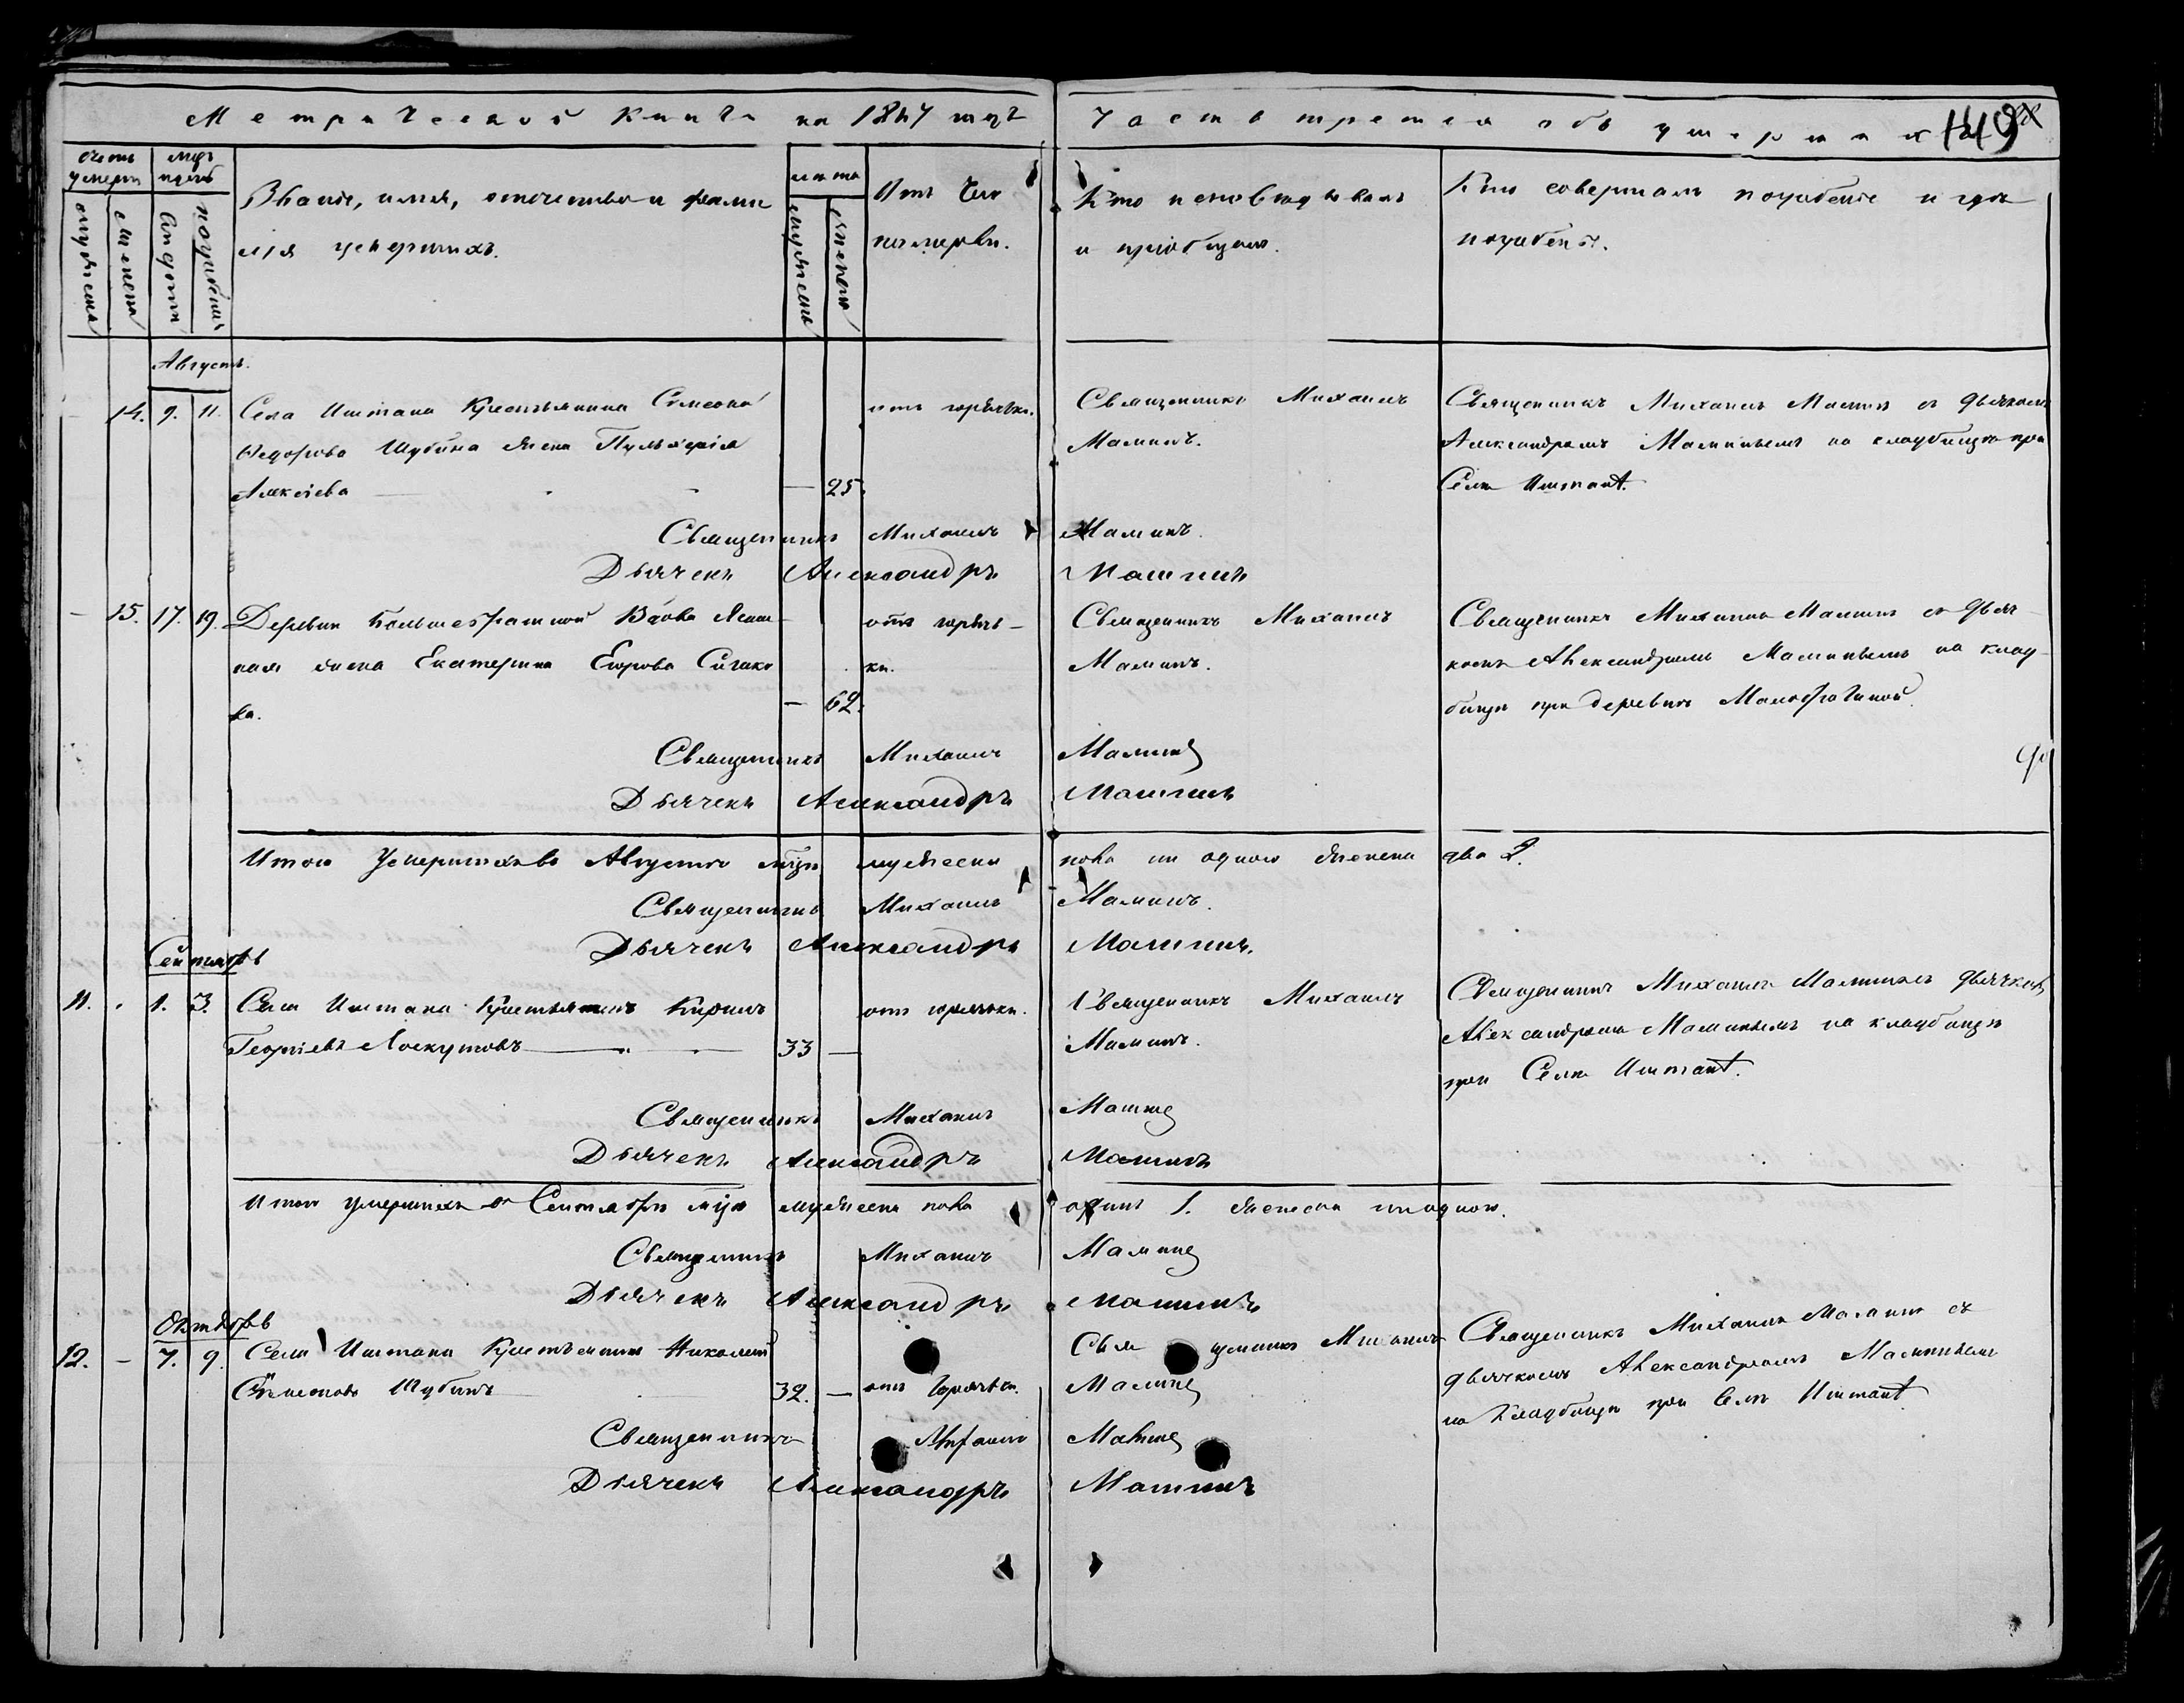 Метрической книги на 1847 годъ
Часть третья объ умершихъ
149
Счетъ умерш
Мцъ и день
Званіе, имя, отечество и фами
лія умершихъ.
Лѣта
Отъ чего
померли.
Кто исповѣдывалъ
и пріобщалъ.
Кто совершалъ погребеніе и гдѣ
погребены.
мужеска
женска
смерти
погребенія
мужеска
женска
Августъ.
14. 9. 11. Села Иштана Крестьянина Симеона
Ѳедорова Шубина жена Пульхерія
Алексѣева — 25.
отъ горячки.
Священникъ Михаилъ
Маминъ.
Священникъ Михаилъ Маминъ съ дьячкомъ
Александромъ Маминымъ на кладбищѣ при
Селѣ Иштант.
Священникъ Михаилъ Маминъ.
Дьячекъ Александръ Маминъ
— 15. 17. 19. Деревни Большебрагиной Вдова
жена Екатерина Егорова
ва. — 62.
отъ горяч-
ки.
Священникъ Михаилъ
Маминъ.
Священникъ Михаилъ Маминъ съ дьяч
комъ Александромъ Маминымъ на клад-
бищѣ при деревнѣ Малобрагиной.
Священникъ Михаилъ Маминъ
Дьячекъ Александръ Маминъ
Итого умершихъ въ Августѣ мцѣ мужеска пола ни одного женска два 2.
Священникъ Михаилъ Маминъ.
Дьячекъ Александръ Маминъ.
Сентябрь
11. . 1. 3. Села Иштана Крестьянинъ Кирилъ
Георгіевъ Лоскутовъ — 33 —
отъ горячки.
Священникъ Михаилъ
Маминъ.
Священникъ Михаилъ Маминъ съ дьячкомъ
Александромъ Маминымъ на кладбищѣ
при Селѣ Иштант.
Священникъ Михаилъ Маминъ
Дьячекъ Александръ Маминъ
Итого умершихъ въ Сентябрѣ мцѣ мужеска пола одинъ 1. женска ни одного.
Священникъ Михаилъ Маминъ
Дьячекъ Александръ Маминъ
Октябрь
12. — 7. 9. Села Иштана Крестьянинъ Николай
Шубинъ 32. —
отъ горячки.
Священникъ Михаилъ
Маминъ
Священникъ Михаилъ Маминъ съ
дьячкомъ Александромъ Маминымъ
на Кладбищѣ при Селѣ Иштант.
Священникъ Михаилъ Маминъ
Дьячекъ Александръ Маминъ